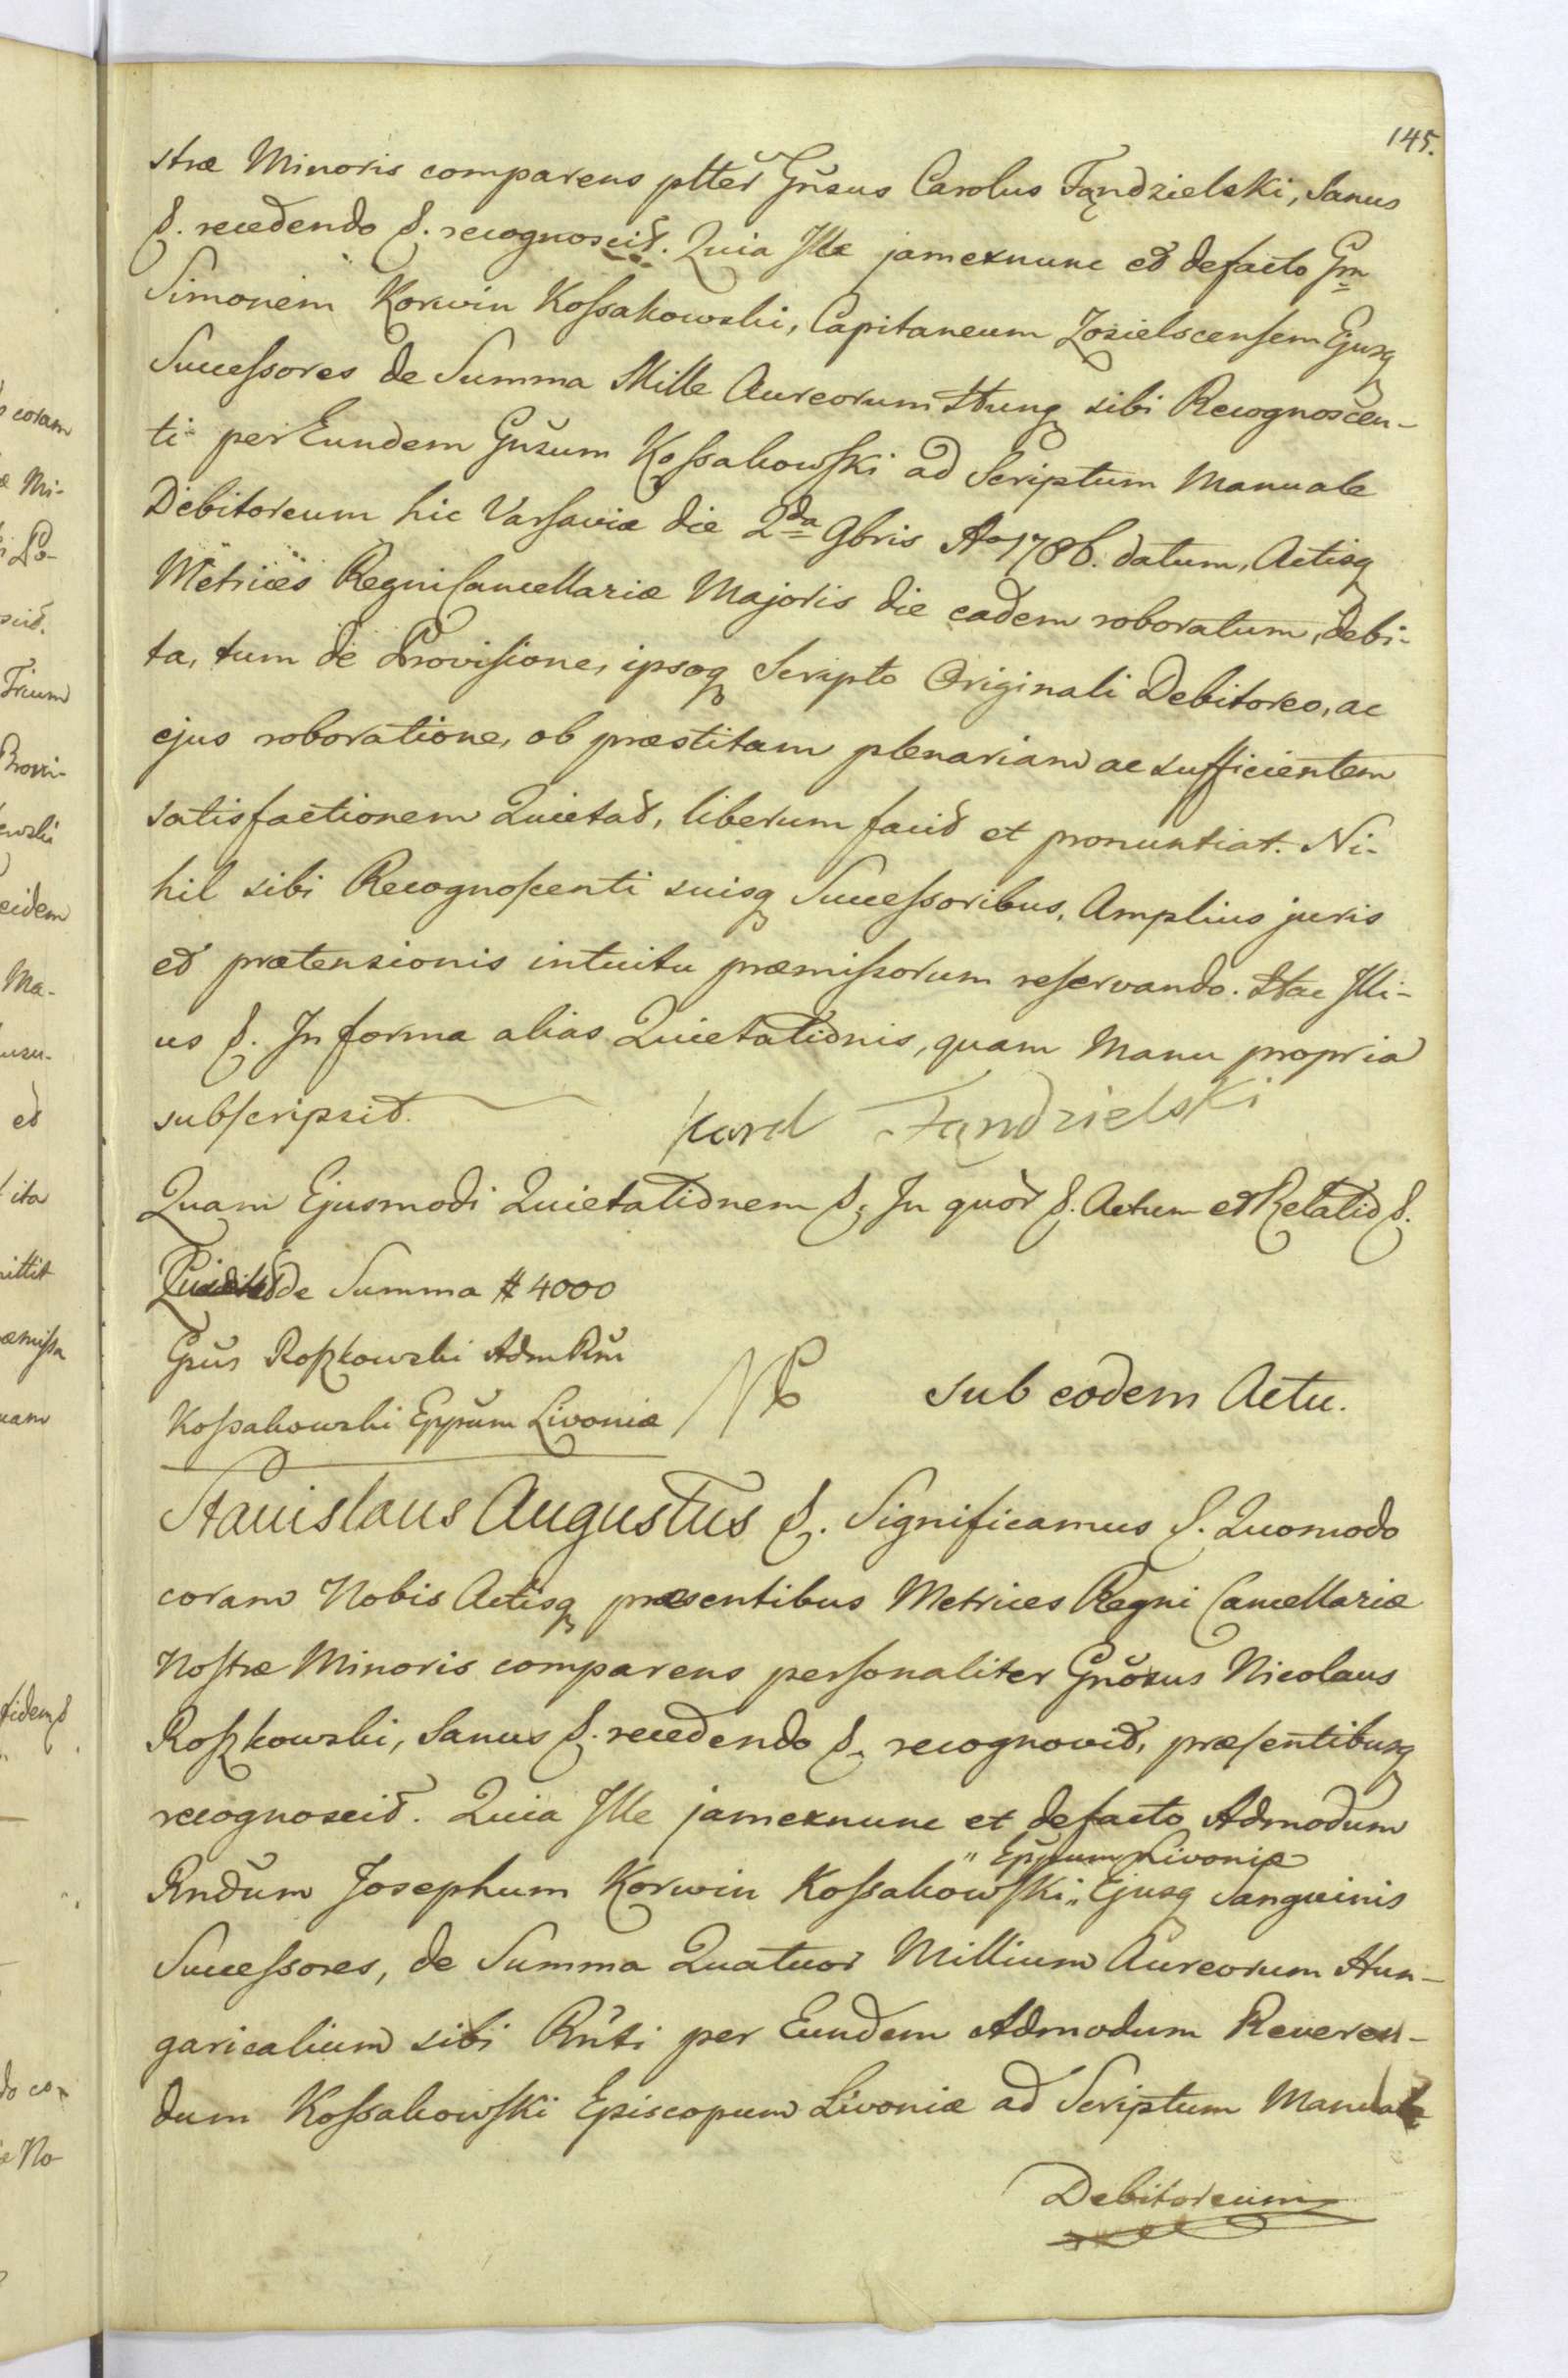 145.
stræ Minoris comparens pltter Gñsus Carolus Fądzielski, Sanus
&. recedendo &. recognoscit. Quia Ille jamexnunc et defacto Gm
Simonem Korwin Kossakowski, Capitaneum Zozielscensem Ejusq
Successores de Summa Mille Aureorum Hung sibi Recognoscen-
ti per Eundem Gñsum Kossakowski ad Scriptum Manuale
Debitoreum hic Varsaviæ die 2da 9bris Ao 1786. datum, Actisq
Metrices Regni Cancellariæ Majoris die eadem roboratum, debi-
ta, tum de Provisione, ipsoq Scripto Originali Debitoreo, ac
ejus roboratione, ob præstitam plenariam ac sufficientem
satisfactionem Quietat, liberum facit et pronuntiat. Ni-
hil sibi Recognoscenti suisq Successoribus, Amplius juris
et prætensionis intuitu præmissorum reservando. Hac Illi-
us &. In forma alias Quietationis, quam Manu propria
subscripsit.
Karol Fądzielski
Quam Ejusmodi Quietationem &. In quor &. Actum et Relatio &.
de Summa # 4000
Gñs Roszkowski Adm Rm
Kossakowski Eppum Livoniæ
sub eodem Actu.
Stanislaus Augustus &. Significamus &. Quomodo
coram Nobis Actisq præsentibus Metrices Regni Cancellariæ
Nostræ Minoris comparens personaliter Gñosus Nicolaus
Roszkowski, Sanus &. recedendo &. recognovit, præsentibusq
recognoscit. Quia Ille jamexnunc et defacto Admodum
" Eppum Livoniæ
Rndum Josephum Korwin Kossakowski " Ejusq Sanguinis
Successores, de Summa Quatuor Millium Aureorum Hun-
garicalium sibi Rnti per Eundem Admodum Reveren-
dum Kossakowski Episcopum Livoniæ ad Scriptum Manuale
Debitoreum